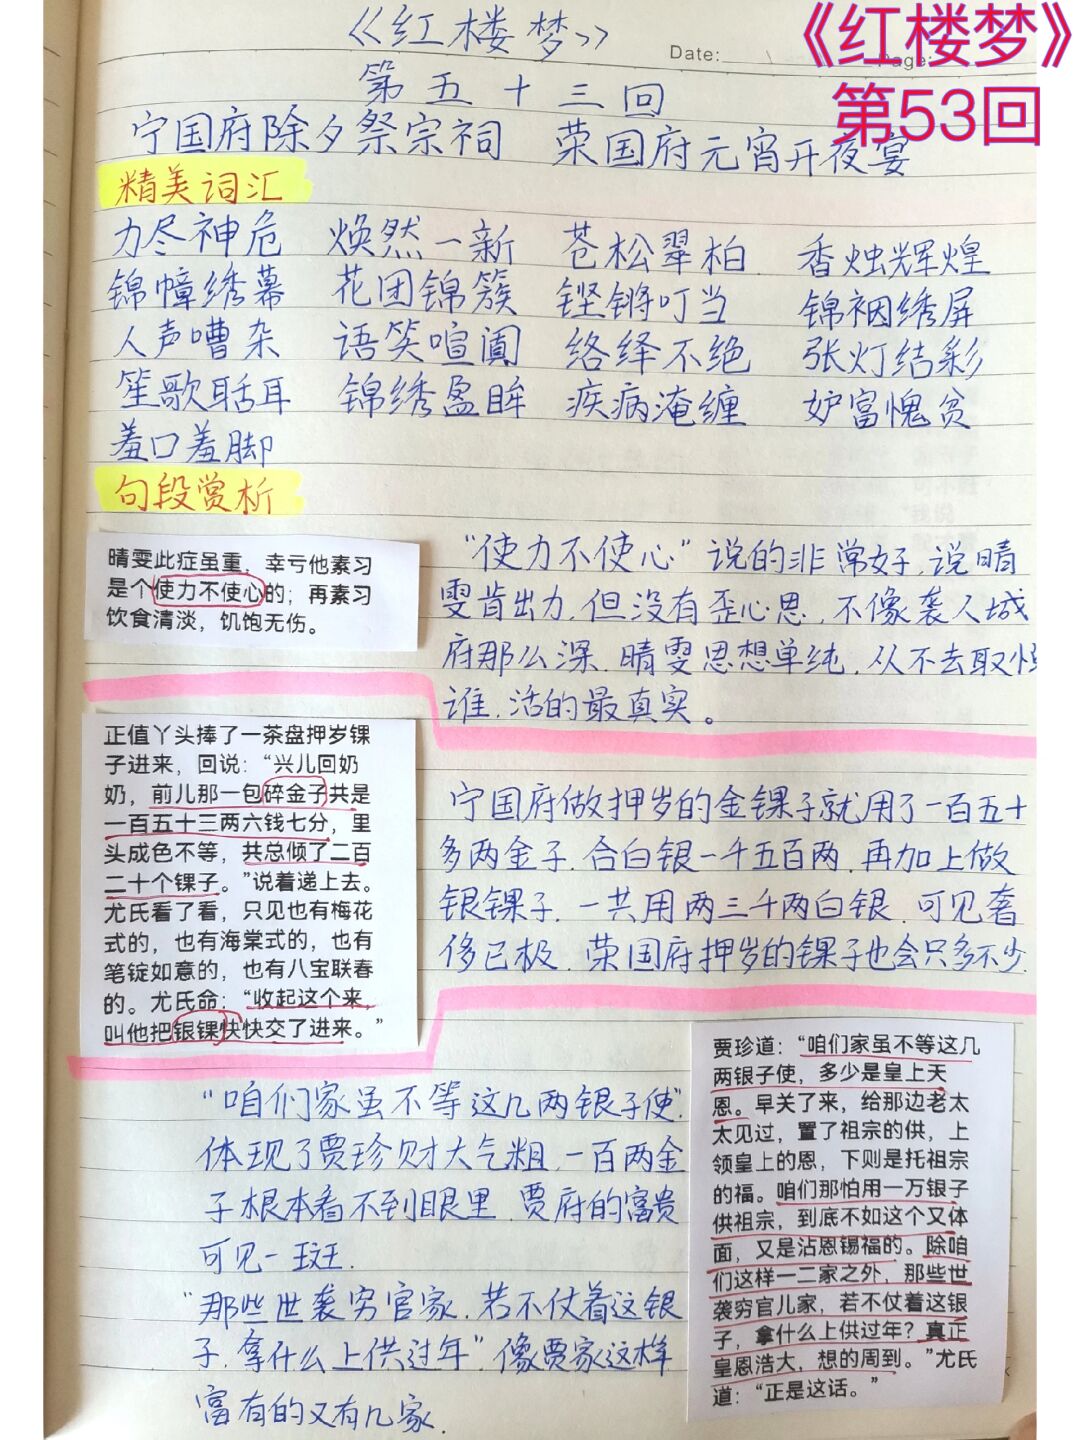 《红楼梦》
Date:
Page:
《红楼梦》
第53回
第五十三回
宁国府除夕祭宗祠 荣国府元宵开夜宴
精美词汇
力尽神危 焕然一新 苍松翠柏 香烛辉煌
锦幛绣幕 花团锦簇 铿锵叮当 锦裀绣屏
人声嘈杂 语笑喧阗 络绎不绝 张灯结彩
笙歌聒耳 锦绣盈眸 疾病淹缠 妒富愧贫
羞口羞脚
句段赏析
晴雯此症虽重，幸亏他素习
是个使力不使心的；再素习
饮食清淡，饥饱无伤。
“使力不使心”说的非常好，说晴
雯肯出力，但没有歪心思，不像袭人城
府那么深，晴雯思想单纯，从不去取悦
谁，活的最真实。
正值丫头捧了一茶盘押岁锞
子进来，回说：“兴儿回奶
奶，前儿那一包碎金子共是
一百五十三两六钱七分，里
头成色不等，共总倾了二百
二十个锞子。”说着递上去。
尤氏看了看，只见也有梅花
式的，也有海棠式的，也有
笔锭如意的，也有八宝联春
的。尤氏命：“收起这个来，
叫他把银锞快快交了进来。”
宁国府做押岁的金锞子就用了一百五十
多两金子，合白银一千五百两，再加上做
银锞子，一共用两三千两白银，可见奢
侈已极，荣国府押岁的锞子也会只多不少.
“咱们家虽不等这几两银子使”，
体现了贾珍财大气粗，一百两金
子根本看不到眼里，贾府的富贵
可见一斑.
“那些世袭穷官家，若不仗着这银
子，拿什么上供过年”，像贾家这样
富有的又有几家.
贾珍道：“咱们家虽不等这几
两银子使，多少是皇上天
恩。早关了来，给那边老太
太见过，置了祖宗的供，上
领皇上的恩，下则是托祖宗
的福。咱们那怕用一万银子
供祖宗，到底不如这个又体
面，又是沾恩锡福的。除咱
们这样一二家之外，那些世
袭穷官儿家，若不仗着这银
子，拿什么上供过年？真正
皇恩浩大，想的周到。”尤氏
道：“正是这话。”